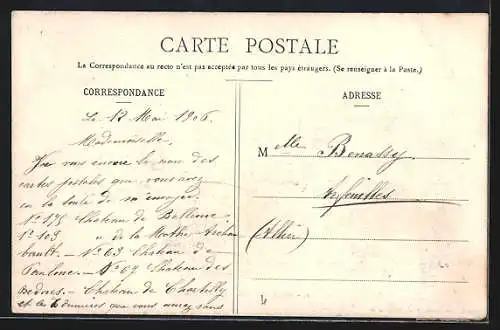 CARTE POSTALE
La Correspondance au recto n'est pas acceptée par tous les pays étrangers. (Se renseigner à la Poste.)
CORRESPONDANCE
Le 13 Mai 1906.
Mademoiselle,
Je vous envoie le nom des
cartes postales que vous avez
eu la bonté de m'envoyer.
N° 175 Chateau de
N° 103 " de la Mothe-Archam
bault. — N° 63 Chateau de
— N° 67 Chateau des
— Chateau de
et les dernières que vous avez
ADRESSE
M elle Benassy
(Allier)